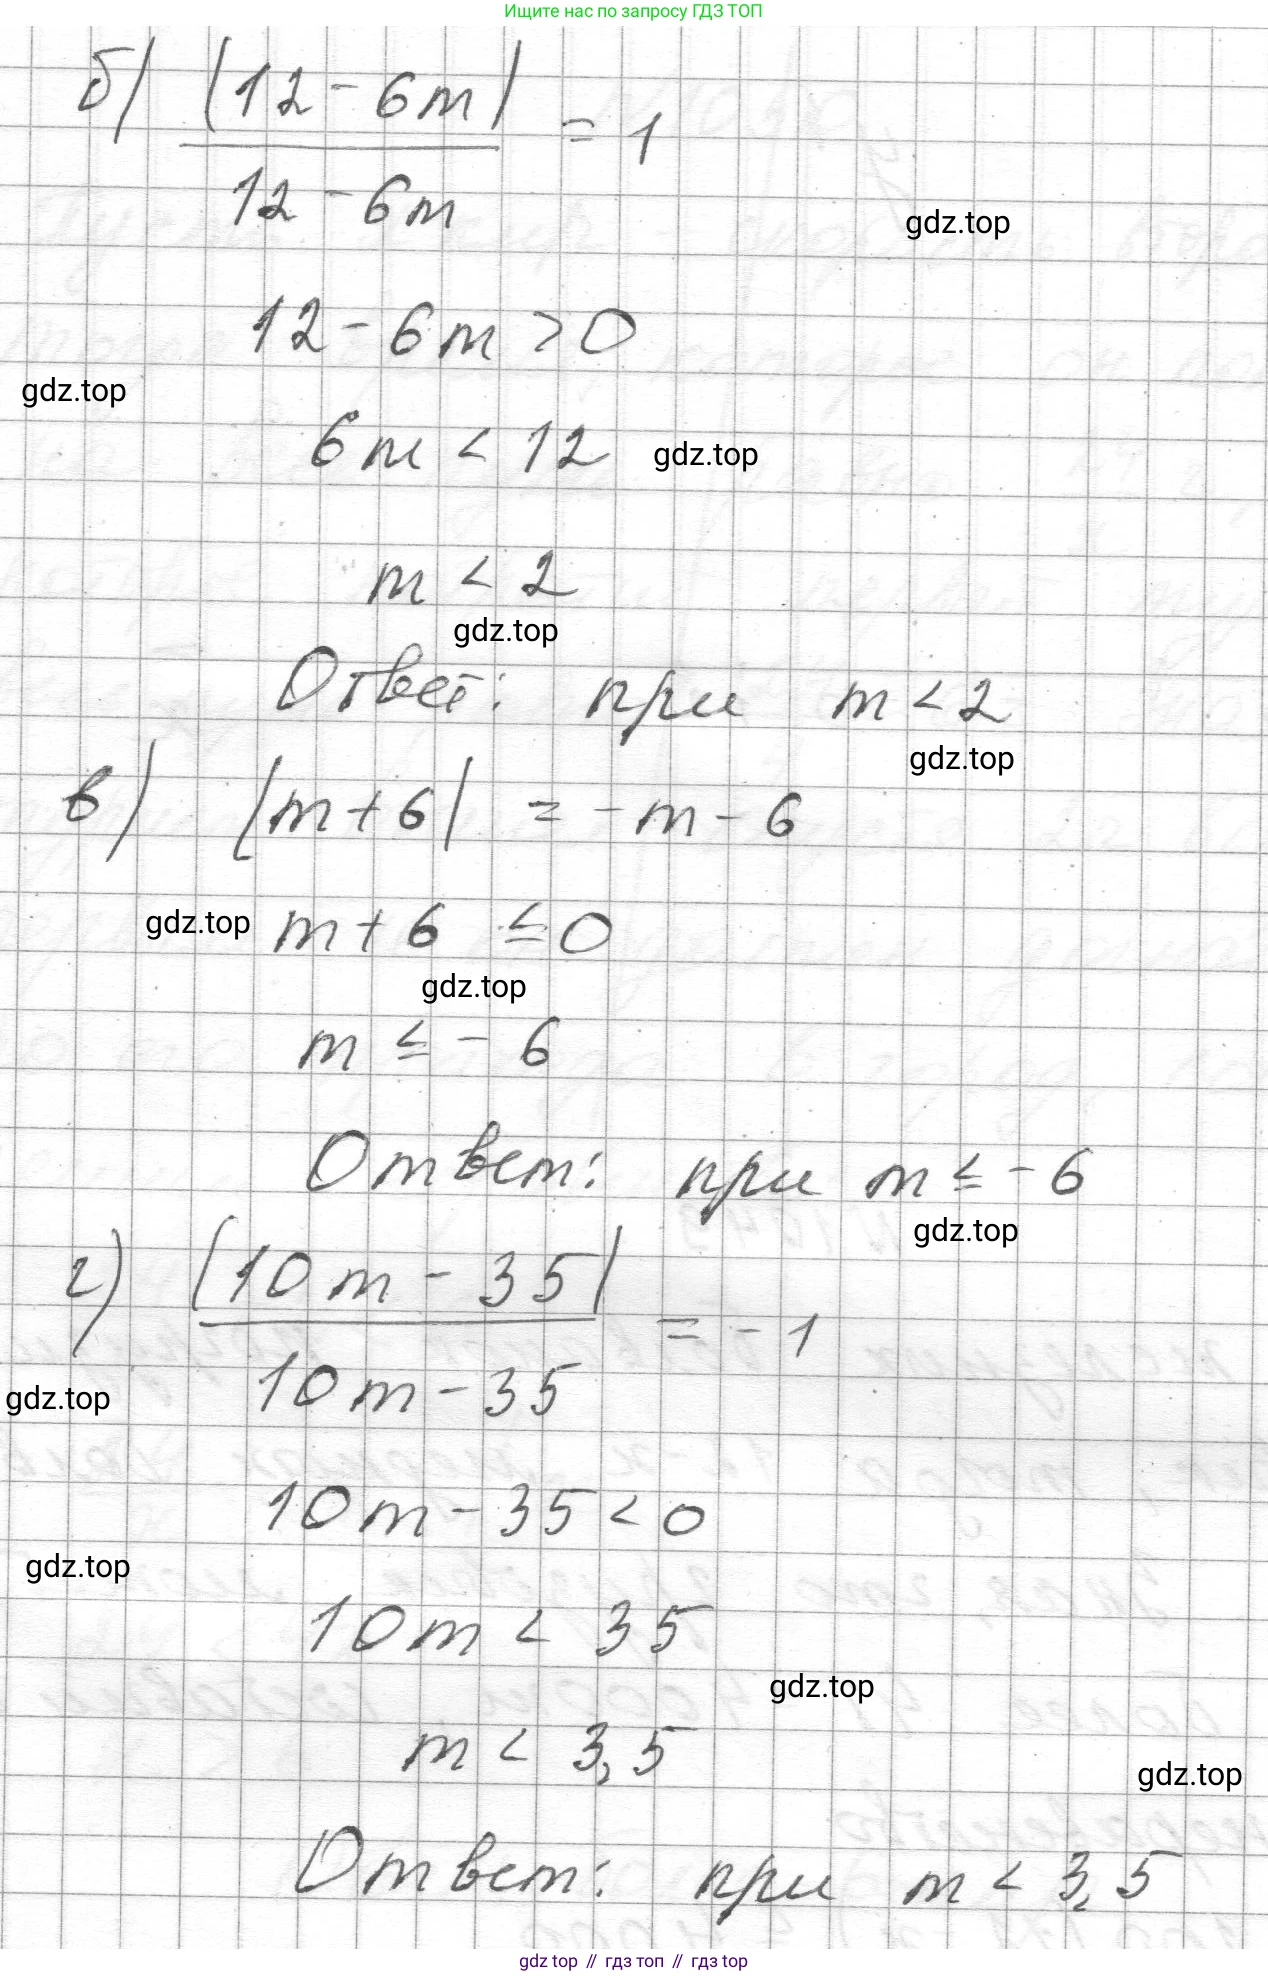 Ищите нас по запросу ГДЗ ТОП
б) |12 - 6m|
= 1
12 - 6m
gdz.top
12 - 6m > 0
gdz.top
6m < 12 gdz.top
m < 2
gdz.top
Ответ: при m < 2
gdz.top
в) |m + 6| = -m - 6
gdz.top m + 6 ≤ 0
gdz.top
m ≤ - 6
Ответ: при m ≤ - 6
gdz.top
г) |10m - 35|
= - 1
10m - 35
gdz.top
10m - 35 < 0
gdz.top
10m < 35
gdz.top
m < 3,5
gdz.top
Ответ: при m < 3,5
gdz top // гдз топ // гдз top